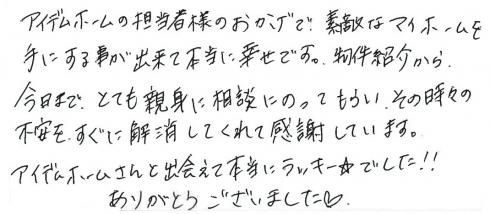 アイデムホームの担当者様のおかげで、素敵なマイホームを
手にする事が出来て本当に幸せです。物件紹介から、
今日まで、とても親身に相談にのってもらい、その時々の
不安を、すぐに解消してくれて感謝しています。
アイデムホームさんと出会えて本当にラッキー☆でした!!
ありがとうございました♡